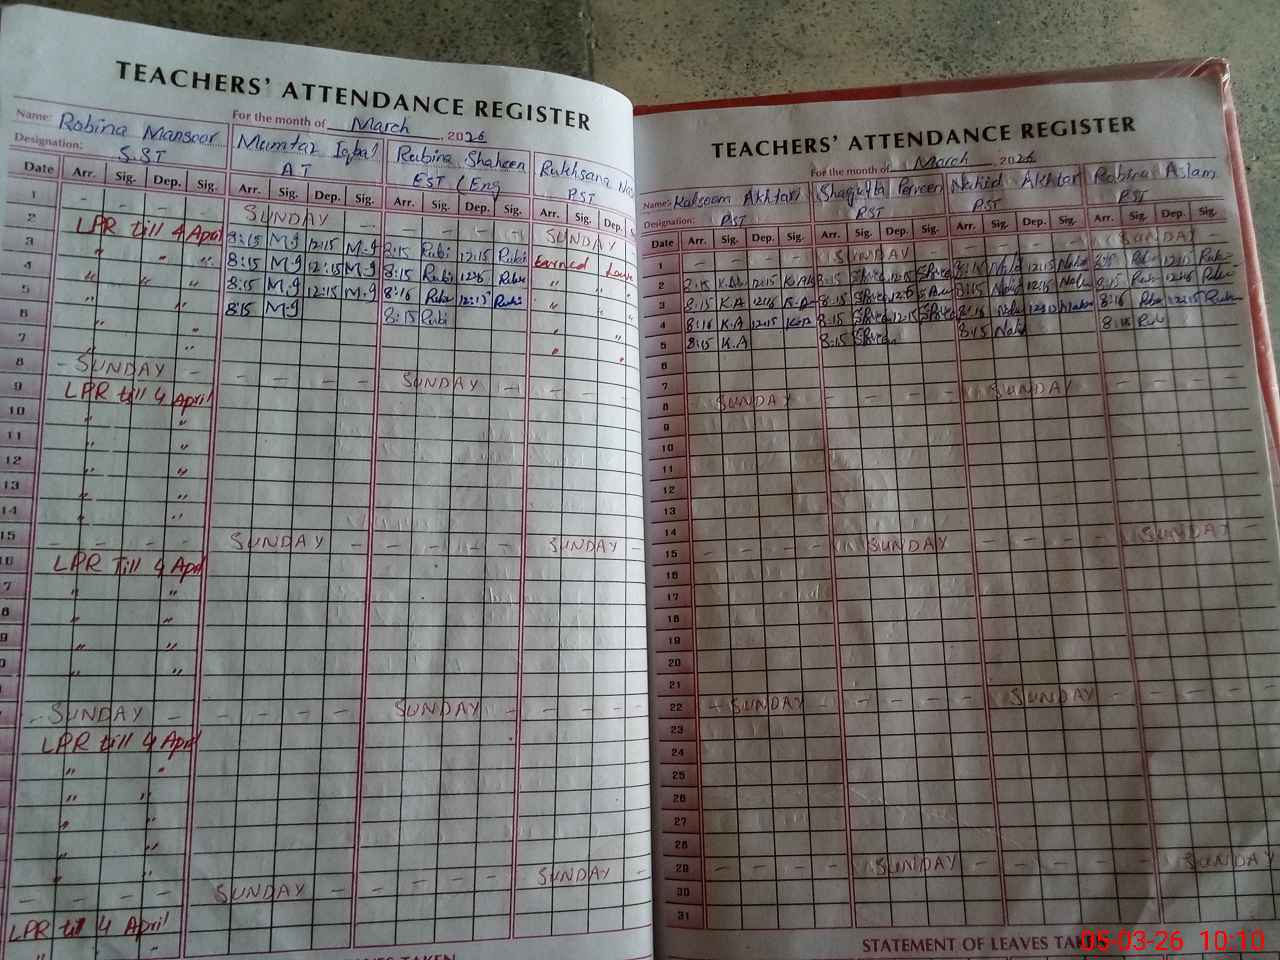 TEACHERS' ATTENDANCE REGISTER
Name: Robina Mansoor For the month of March 2026
Mumtaz Iqbal Rubina Shaheen Rukhsana
Designation: S.ST AT EST (Eng PST
Date Arr. Sig. Dep. Sig. Arr. Sig. Dep. Sig. Arr. Sig. Dep. Sig. Arr. Sig. Dep.
1 - - - - SUNDAY - - - - - SUNDAY
2 LPR till 4 April 8:15 M.I 12:15 M.I 8:15 Rubi 12:15 Rubi Earned Leave
3 " " 8:15 M.I 12:15 M.I 8:15 Rubi Rubi " "
4 " " 8:15 M.I 12:15 M.I 8:16 Rubi Rubi " "
5 " " 8:15 M.I 8:15 Rubi " "
6 " "
7 "
8 - SUNDAY - - - - - SUNDAY -
9 LPR till 4 April
10 "
11 "
12 " "
13 " "
14 "
15 - - - - SUNDAY - - - - - SUNDAY -
16 LPR Till 4 April
17 " "
18 " "
19 " "
20 " "
- SUNDAY - - - - - SUNDAY
LPR till 4 April
" "
" "
" "
" "
" "
- - - - SUNDAY - - - - - SUNDAY -
LPR till 4 April
" "
TEACHERS' ATTENDANCE REGISTER
For the month of March 2026
Name: Kalsoom Akhtari Shagufta Perveen Nahid Akhtar Robina Aslam
Designation: PST PST PST PST
Date Arr. Sig. Dep. Sig. Arr. Sig. Dep. Sig. Arr. Sig. Dep. Sig. Arr. Sig. Dep. Sig.
1 - - - - SUNDAY - - - - - SUNDAY
2 8:15 12:15 8:15 12:15 8:15 12:15 12:15
3 8:15 K.A K.A 8:15 8:15 12:15 8:15
4 8:16 K.A 12:15 K.A 8:15 12:15 8:16 8:16 12:15
5 8:15 K.A 8:15 8:15 8:15
6
7
8 - SUNDAY - - - - - SUNDAY - - - -
9
10
11
12
13
14
15 - - - - SUNDAY - - - - - SUNDAY -
16
17
18
19
20
21
22 - SUNDAY - - - - - SUNDAY - - - -
23
24
25
26
27
28
29 - - - - SUNDAY - - - - - SUNDAY
30
31
STATEMENT OF LEAVES
05-03-26 10:10